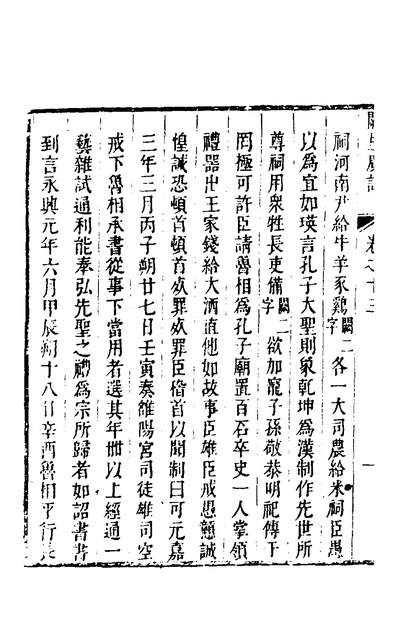 闕里廣誌 卷之十三 一
祠河南尹給牛羊豕鷄闕二字各一大司農給米祠臣愚
以爲宜如瑛言孔子大聖則象乾坤爲漢制作先世所
尊祠用衆牲長吏備闕二字欲加寵子孫敬恭明祀傳于
罔極可許臣請魯相爲孔子廟置百石卒史一人掌領
禮器出王家錢給大酒直他如故事臣雄臣戒愚戇誠
惶誠恐頓首頓首死罪死罪臣稽首以聞制曰可元嘉
三年三月丙子朔廿七日壬寅奏雒陽宮司徒雄司空
戒下魯相承書從事下當用者選其年卌以上經通一
藝雜試通利能奉弘先聖之禮爲宗所歸者如詔書書
到言永興元年六月甲辰朔十八日辛酉魯相平行長